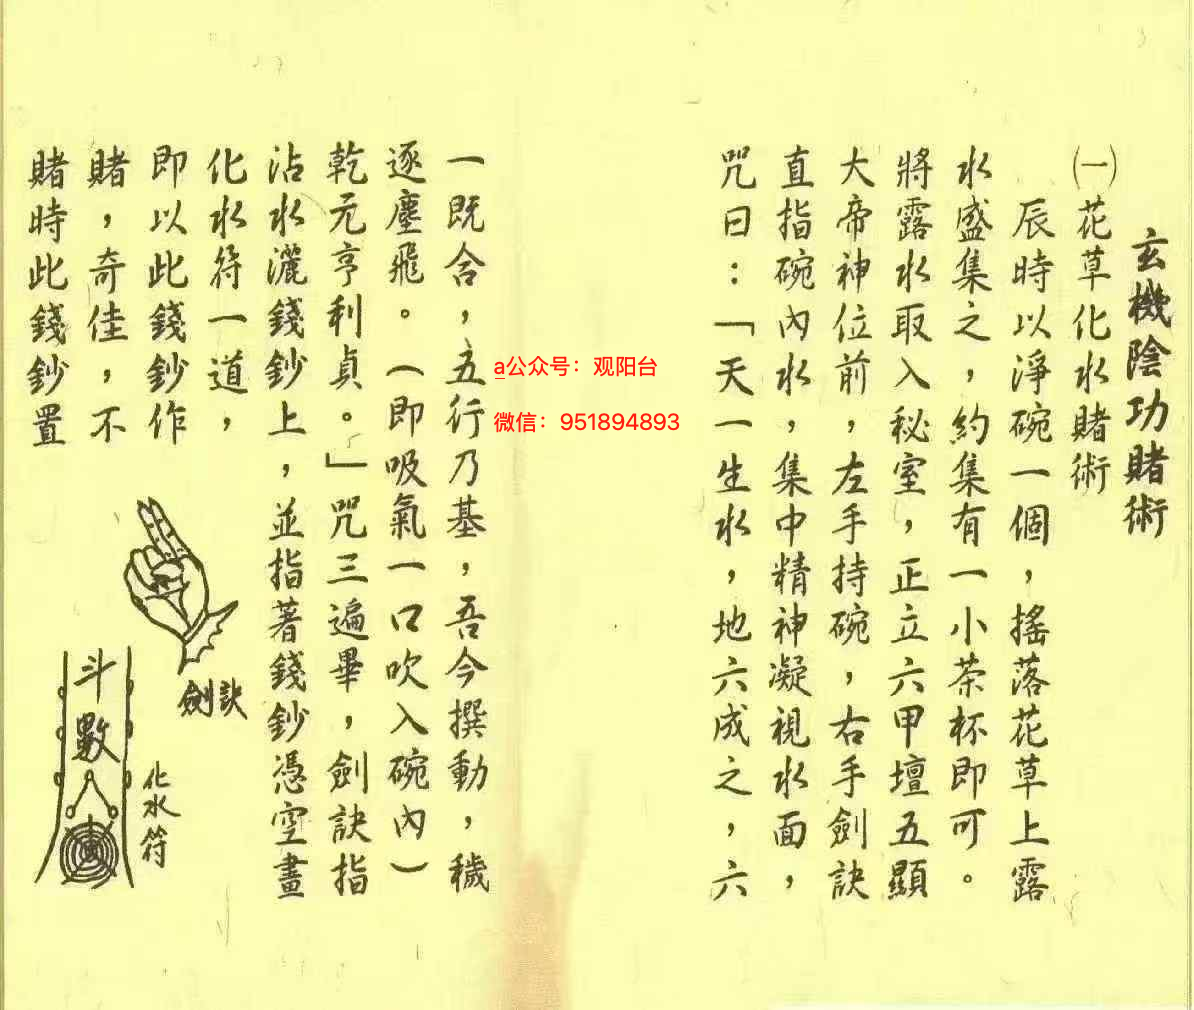 玄機陰功賭術
㈠花草化水賭術
辰時以淨碗一個，搖落花草上露
水盛集之，約集有一小茶杯即可。
將露水取入秘室，正立六甲壇五顯
大帝神位前，左手持碗，右手劍訣
直指碗內水，集中精神凝視水面，
咒曰：「天一生水，地六成之，六
一既合，五行乃基，吾今撰動，穢
逐塵飛。（即吸氣一口吹入碗內）
乾元亨利貞。」咒三遍畢，劍訣指
沾水灑錢鈔上，並指著錢鈔憑空畫
化水符一道，
即以此錢鈔作
賭，奇佳，不
賭時此錢鈔置
劍訣
化水符
斗數
a公众号：观阳台
微信：951894893